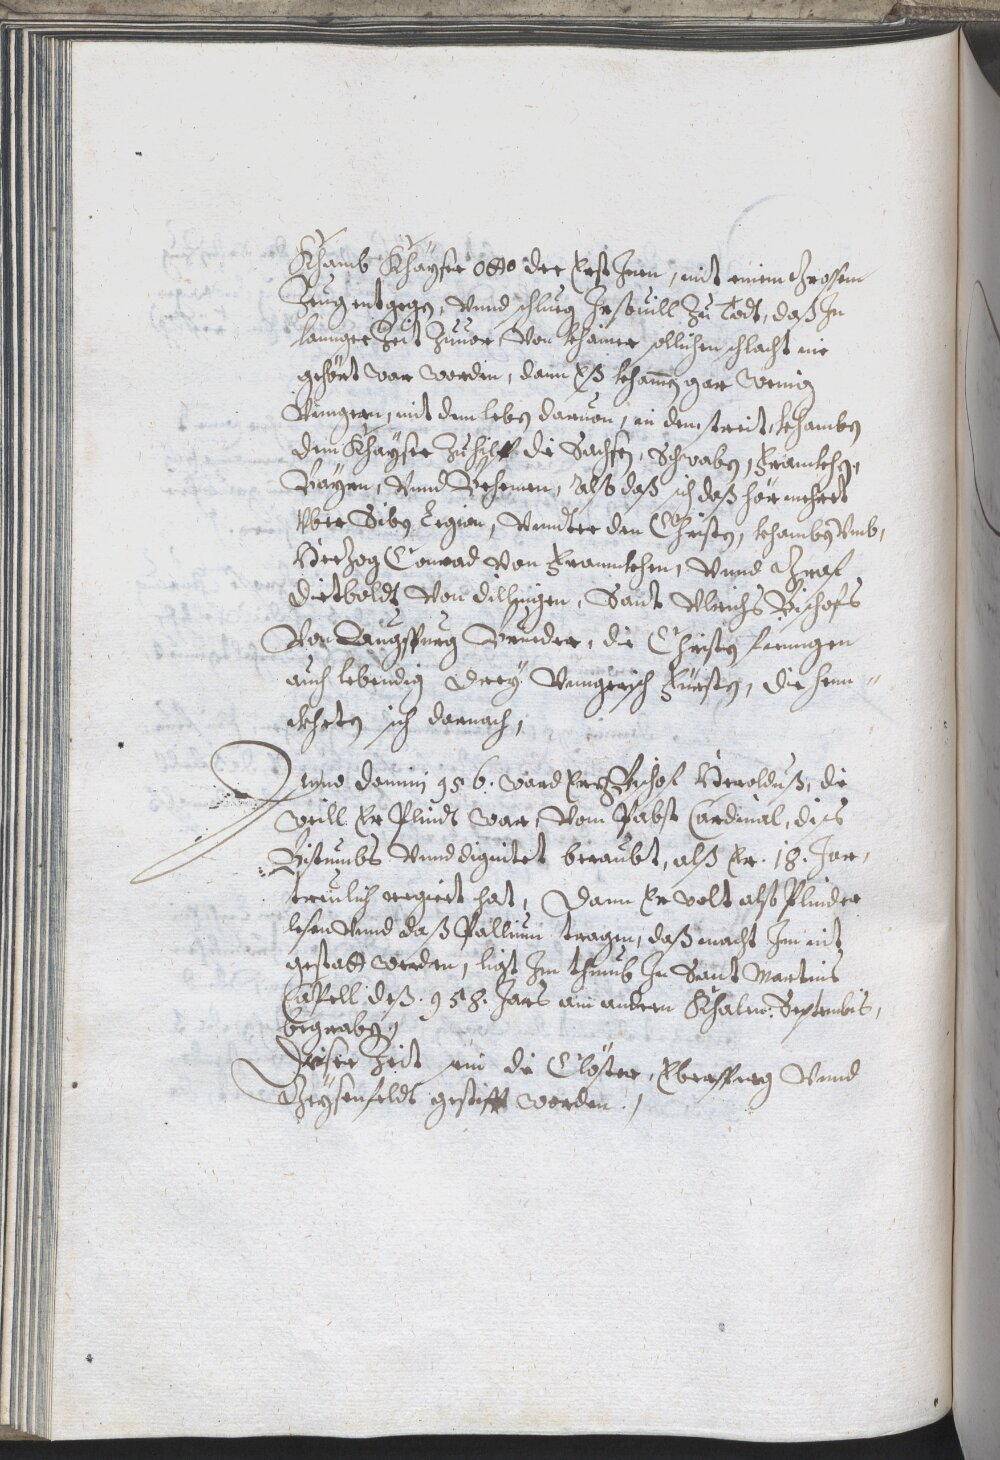 Khamb Khayser Otto der Erst Inen, mit einem Grossen
Zeug entgegen, vnnd schlueg Ir souill zu Todt, daß In
lannger Zeit zuuor von khainer sollichen schlacht nie
gehört war worden, dann Eß khamen gar wenig
Vungern, mit dem leben daruon, in dem streit, khamben
dem Khayser zu hilff die Sachsen, Schwaben, Frannkhen,
Bayrn, vnnd Behemen, also daß sich daß hör mehret
Vber Siben Legion, vnndter den Christen, khamben vmb,
Herzog Conrad von Frannkhen, vnnd Graf
Dietboldt von Dillingen, Sant Vlrichs Bischofs
von Augspurg Brueder, die Christen fienngen
auch lebendig Drey Vungerisch Fürsten, die henn"
ckheten sich darnach,
Anno domini 956. ward Erzbischof Heroldus, die
weill Er Plindt war, vom Pabst Cardinal, diss
Bistumbs vnnd dignitet beraubt, alß Er .18. Jar,
treulich regiert hat, Dann Er wolt also Plinder
lesen vnnd daß Pallium tragen, daß macht Im nit
gestatt werden, ligt Im thumb In Sant Martins
Capell deß .958. Jars am andern Khalen: Septembris,
begraben,
Diser Zeit sein die Clöster, Eberspurg vnnd
Geysenfeldt gestifft worden,